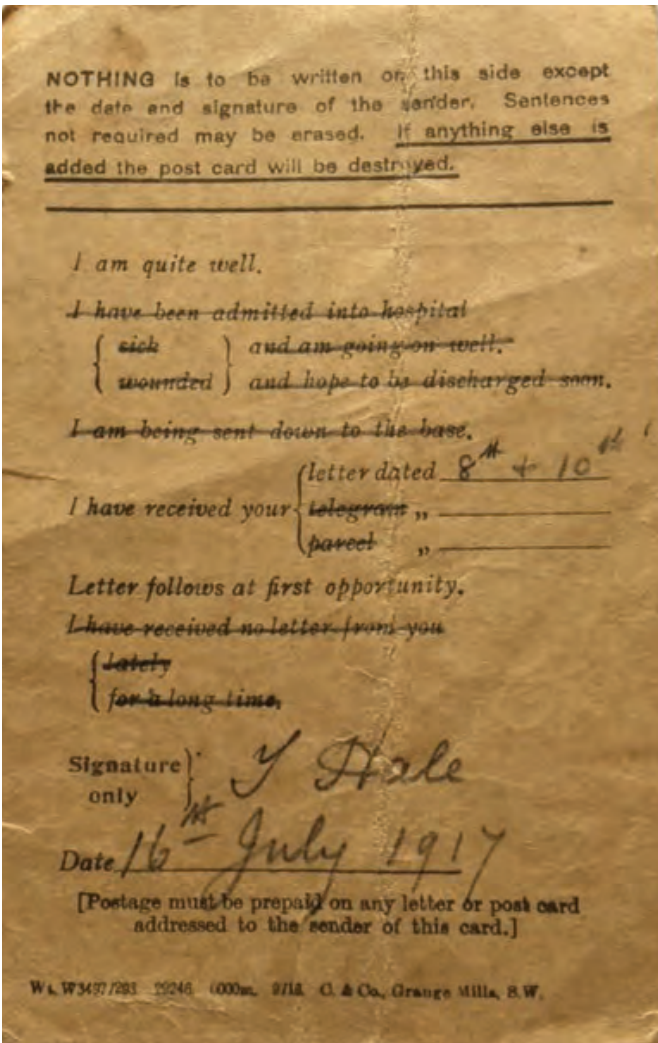 NOTHING is to be written on this side except
the date and signature of the sender. Sentences
not required may be erased. If anything else is
added the post card will be destroyed.
I am quite well.
I have been admitted into hospital
sick } and am going on well.
wounded } and hope to be discharged soon.
I am being sent down to the base.
letter dated 8th + 10th
I have received your { telegram „
parcel „
Letter follows at first opportunity.
I have received no letter from you
lately
for a long time.
Signature } T Hale
only
Date 16th July 1917
[Postage must be prepaid on any letter or post card
addressed to the sender of this card.]
Wt. W3497/293 29246 6000m. 9/16 C. & Co., Grange Mills, S.W.